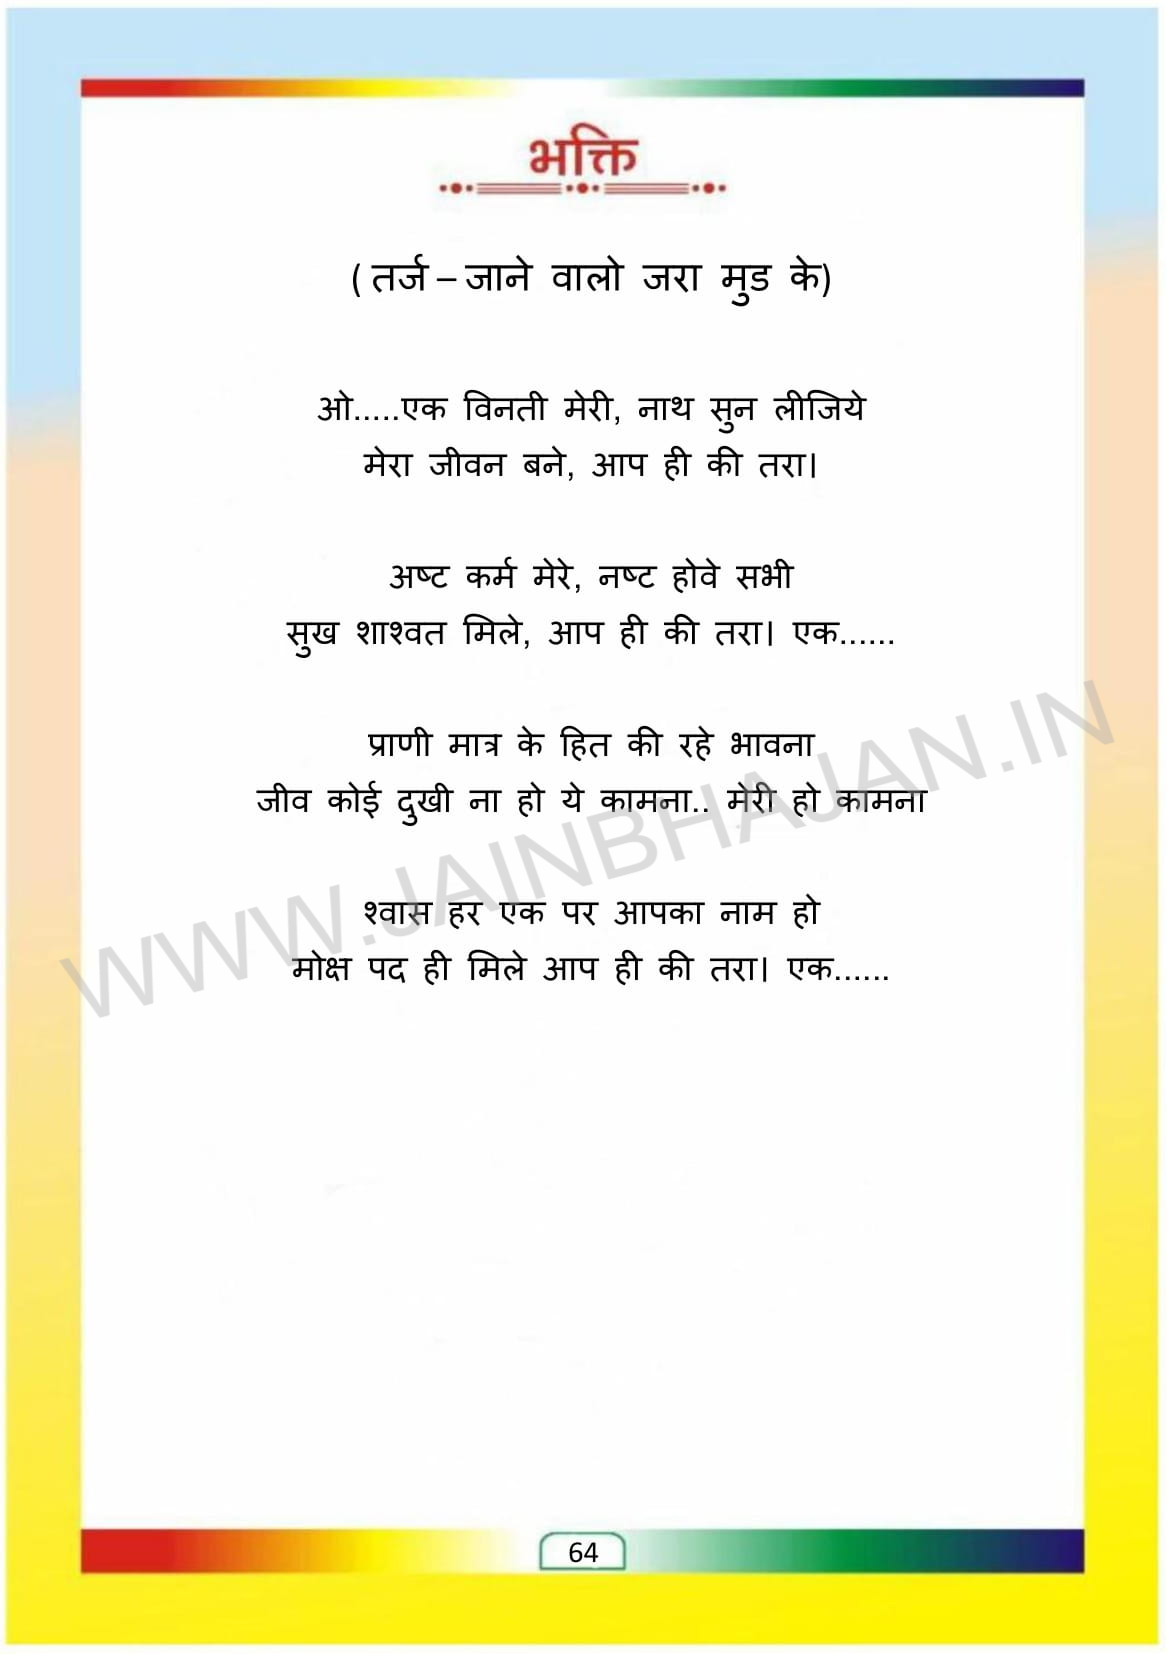 भक्ति
( तर्ज – जाने वालो जरा मुड के)
ओ.....एक विनती मेरी, नाथ सुन लीजिये
मेरा जीवन बने, आप ही की तरा।
अष्ट कर्म मेरे, नष्ट होवे सभी
सुख शाश्वत मिले, आप ही की तरा। एक......
प्राणी मात्र के हित की रहे भावना
जीव कोई दुखी ना हो ये कामना.. मेरी हो कामना
श्वास हर एक पर आपका नाम हो
मोक्ष पद ही मिले आप ही की तरा। एक......
WWW.JAINBHAJAN.IN
64